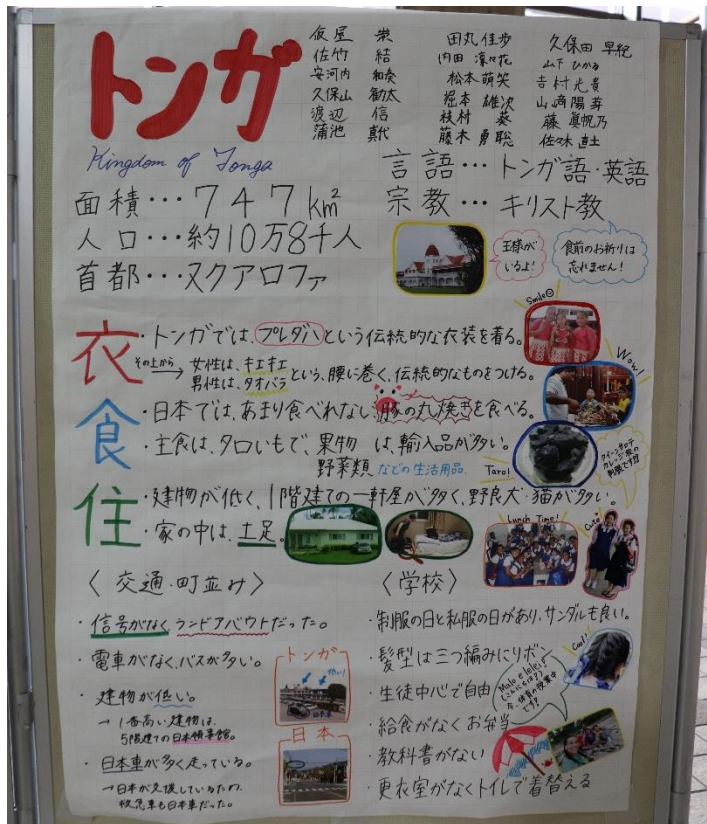 トンガ
Kingdom of Tonga
仮屋 栄
佐竹 結
安河内 和奏
久保山 勧太
渡辺 信
蒲池 真代
田丸 佳歩
内田 凜々花
松本 萌笑
堀本 雄次
枝村 葵
藤木 勇聡
久保田 早紀
山下 ひかる
吉村 光貴
山﨑 陽芽
藤 眞帆乃
佐々木 直士
面積…747km²
人口…約10万8千人
首都…ヌクアロファ
言語…トンガ語・英語
宗教…キリスト教
王様が
いるよ!
食前のお祈りは
忘れません!
衣
・トンガでは、プレタハという伝統的な衣装を着る。
その上から→女性は、キエキエ
男性は、タオバラという、腰に巻く、伝統的なものをつける。
Smile
食
・日本では、あまり食べれない豚の丸焼きを食べる。
・主食は、タロいもで、果物 は、輸入品が多い。
野菜類 などの生活用品
Wow!
Taro!
クイーンサロテ
カレッジ校の
制服です!!
住
・建物が低く、1階建ての一軒屋が多く、野良犬・猫が多い。
・家の中は、土足。
Lunch Time!
Cute!
〈交通・町並み〉
・信号がなくランドアバウトだった。
・電車がなく、バスが多い。
・建物が低い。
→1番高い建物は、
5階建ての日本領事館。
・日本車が多く走っている。
→日本が支援しているため、
救急車も日本車だった。
トンガ
低い!
日本車
日本
〈学校〉
・制服の日と私服の日があり、サンダルも良い。
・髪型は三つ編みにリボン
・生徒中心で自由
・給食がなくお弁当
・教科書がない
・更衣室がなくトイレで着替える
Cool!
Malo e lelei
(こんにちは)
体育の授業中
です!!